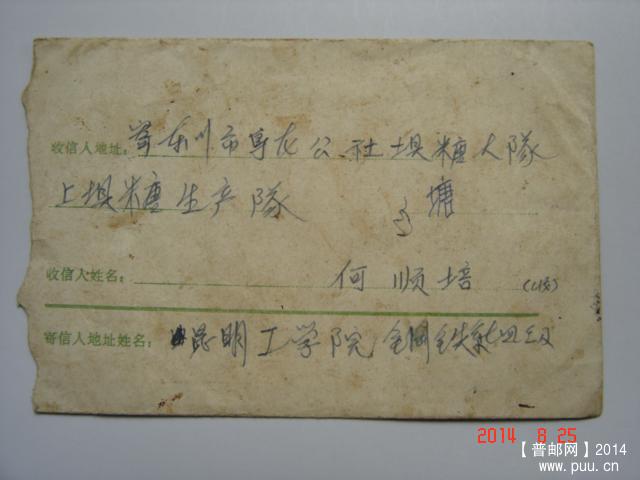 收信人地址：寄东川市阜龙公社坝糖大队
上坝糖生产队 塘
收信人姓名： 何顺培
寄信人地址姓名： 昆明工学院 钢铁
2014 8 25
【普邮网】2014
www.puu.cn